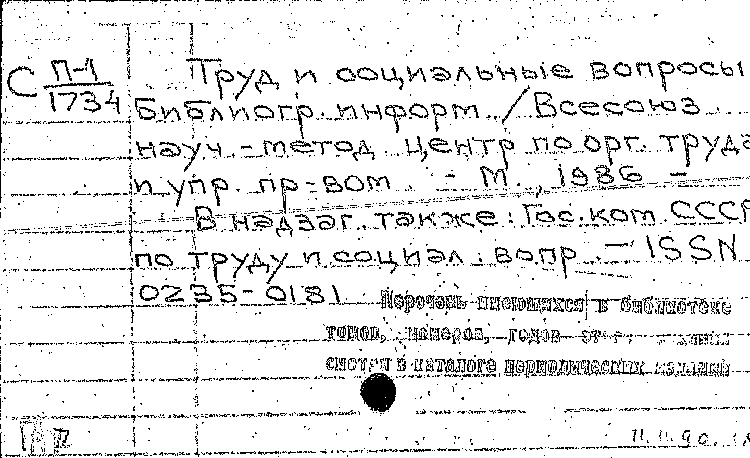 С П-1
1734
Труд и социальные вопросы
библиогр. информ. / Всесоюз.
науч.-метод. центр по орг. труда
и упр. пр-вом. - М., 1986 -
В надзаг. также: Гос. ком. СССР
по труду и социал. вопр. - ISSN
0235-0181
Перечень имеющихся в библиотеке
томов, номеров, годов
смотри в каталоге периодических изданий
11.11.90.